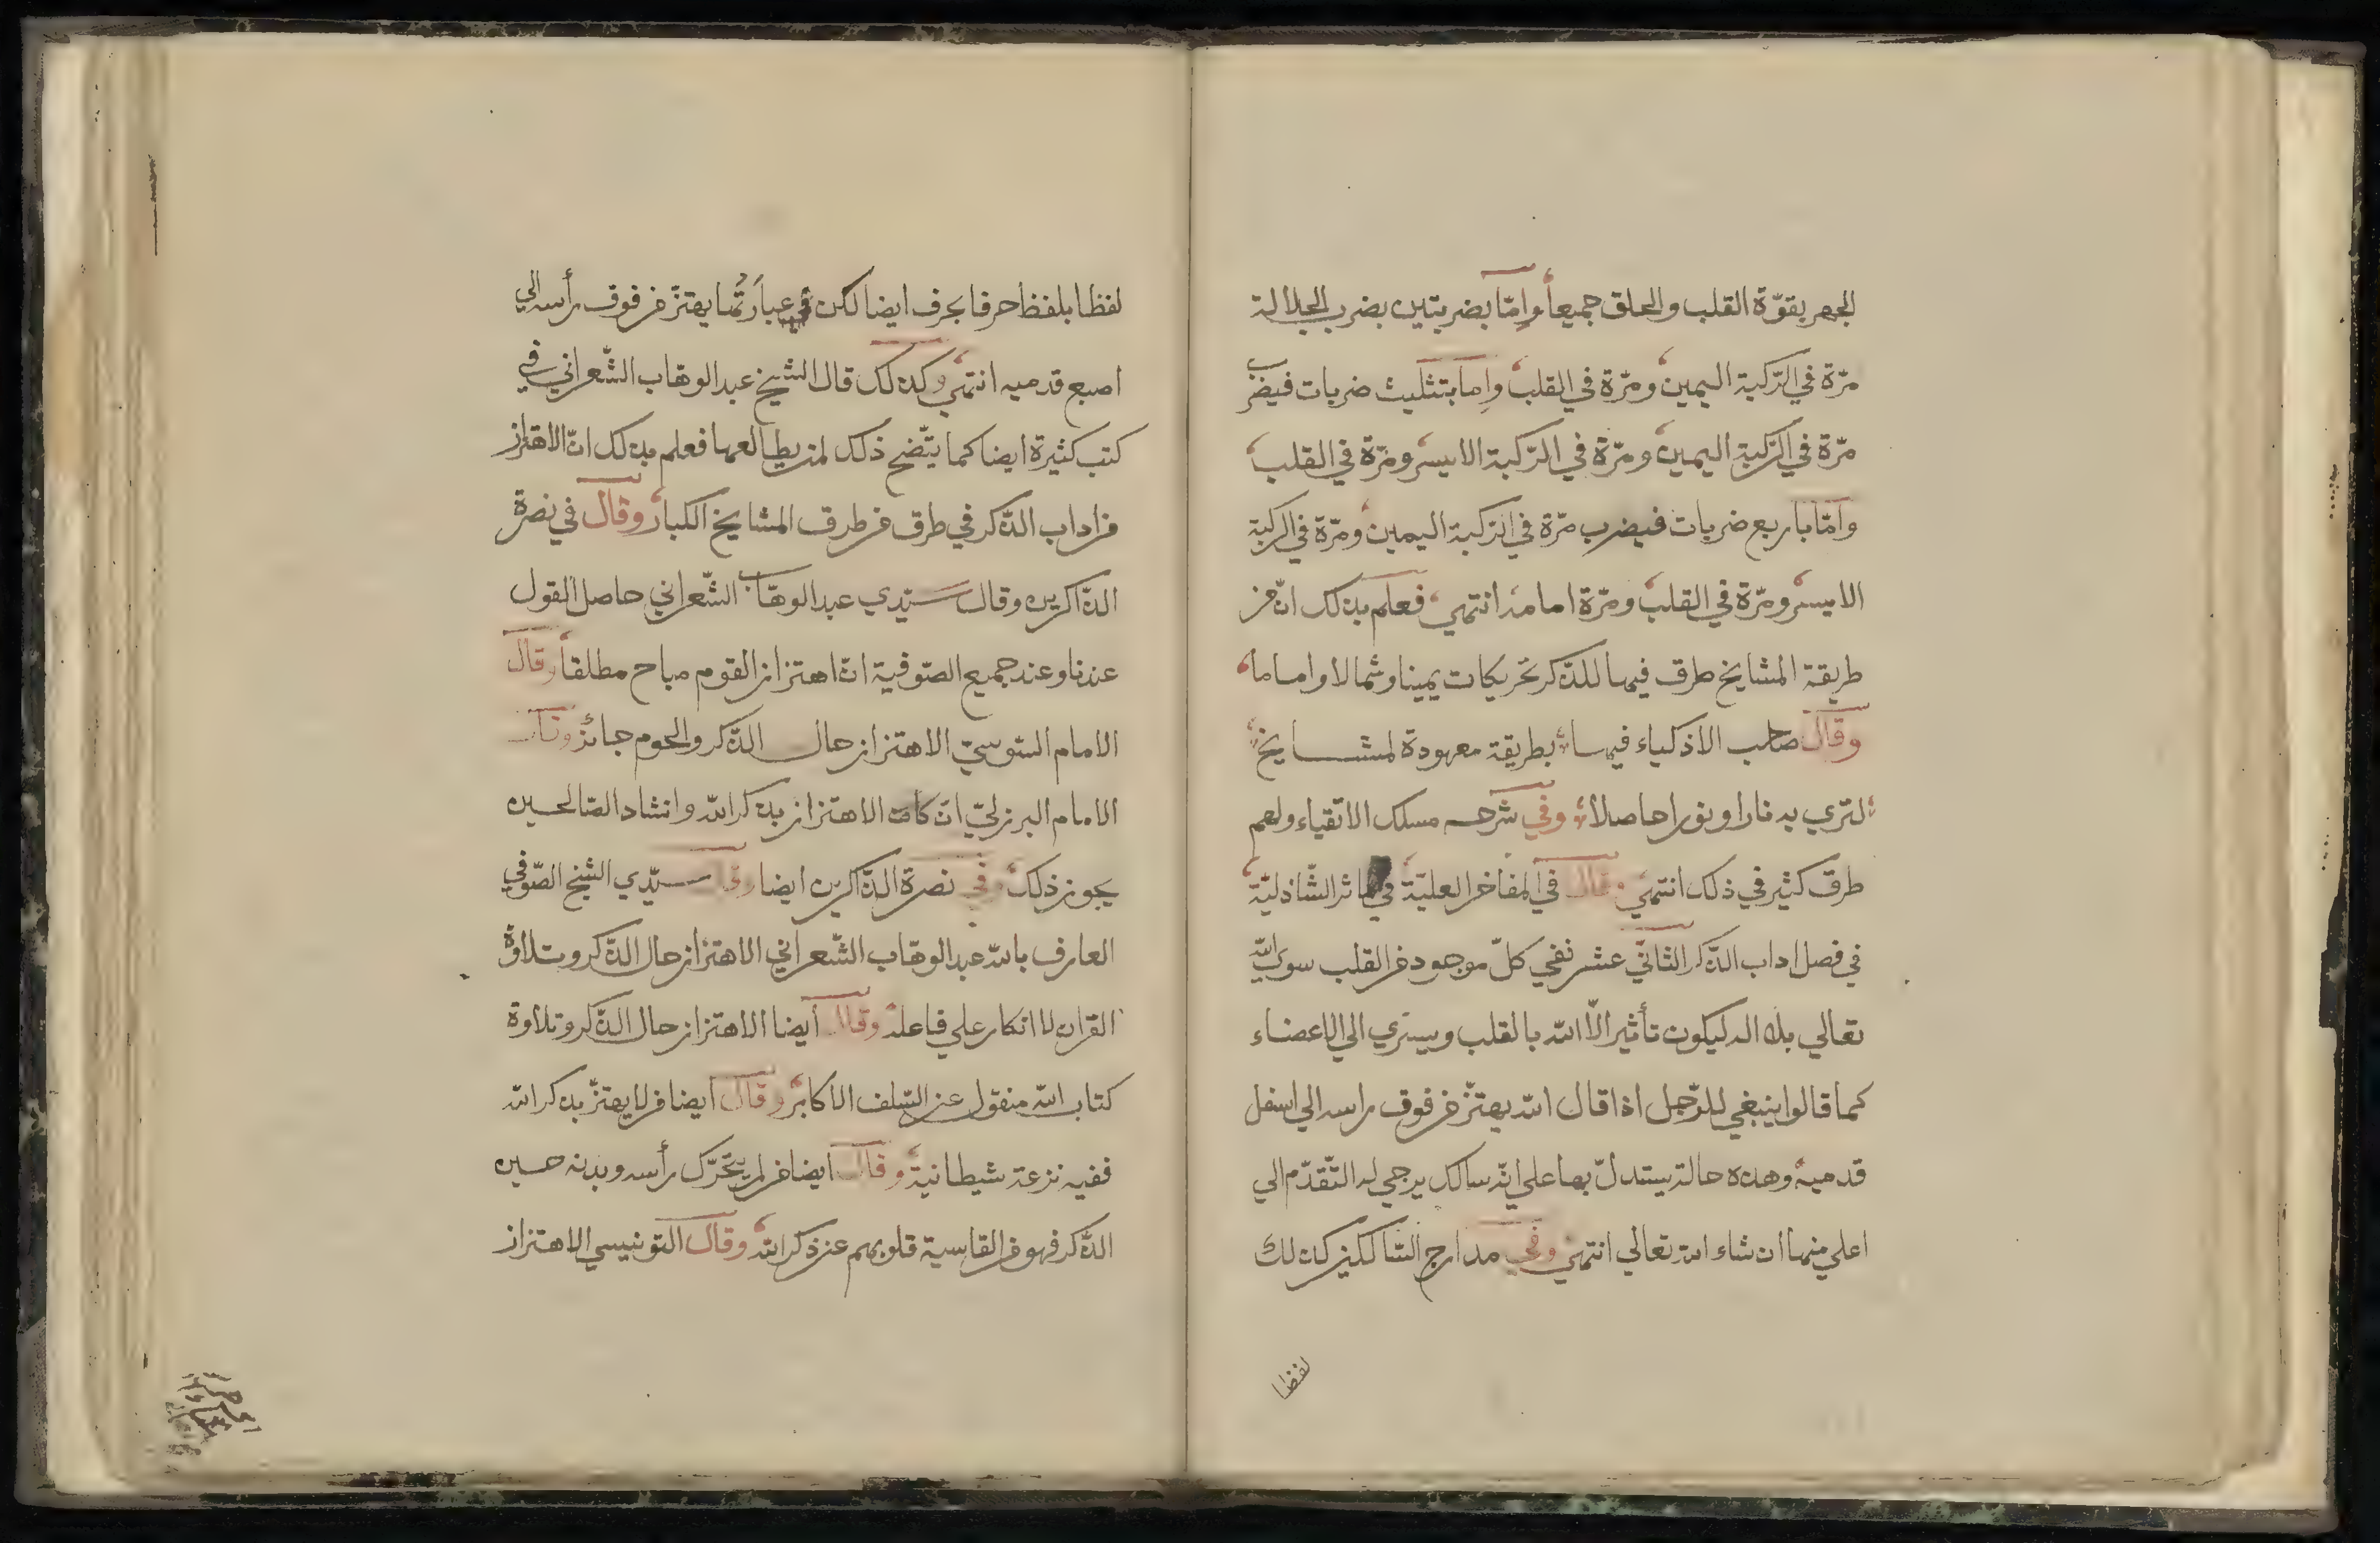 الجهر بقوّة القلب والحلق جميعاً وإمّا بضربتين بضرب الجلالة
مرّة في الرّكبة اليمين ومرّة في القلب وإما بتثليث ضربات فيضرب
مرّة في الرّكبة اليمين ومرّة في الرّكبة الايسر ومرّة في القلب
وامّا باربع ضربات فيضرب مرّة في الرّكبة اليمين ومرّة في الركبة
الايسر ومرّة في القلب ومرّة امامه انتهي فعلم بذلك انّ من
طريقة المشايخ طرق فيها للذّكر تحريكات يمينا وشمالا واماما
وقال صاحب الاذكياء فيها بطريقة معهودة لمشايخ
لتري به نارا ونورا حاصلا وفي شرحه مسلك الاتقياء ولهم
طرق كثير في ذلك انتهي وقال في المفاخر العليّة في ماثر الشّاذليّة
في فصل اداب الذّكر الثّاني عشر نفي كلّ موجود من القلب سوي الله
تعالي بلا اله ليكون تأثير الّا الله بالقلب ويسري الي الاعضاء
كما قالوا ينبغي للرّجل اذا قال الله يهتزّ من فوق راسه الي اسفل
قدميه وهذه حالة يستدلّ بها علي انّه سالك يرجي له التّقدّم الي
اعلي منها ان شاء الله تعالي انتهي وفي مدارج السّالكين كذلك
لفظا
لفظا بلفظ حرفا بحرف ايضا لكن في عبارته ثمّا يهتزّ من فوق رأسه الي
اصبع قدميه انتهي وكذلك قال الشيخ عبد الوهّاب الشّعراني في
كتب كثيرة ايضا كما يتّضح ذلك لمن يطالعها فعلم بذلك انّ الاهتزاز
من اداب الذّكر في طرق من طرق المشايخ الكبار وقال في نصرة
الذّاكرين وقال سيّدي عبد الوهّاب الشّعراني حاصل القول
عندنا وعند جميع الصّوفية انّ اهتزاز القوم مباح مطلقا وقال
الامام السّنوسيّ الاهتزاز حال الذّكر والحوم جائز وقال
الامام البرزليّ ان كان الاهتزاز بذكر الله وانشاد الصّالحين
يجوز ذلك في نصرة الذّاكرين ايضا وقال سيّدي الشيخ الصّوفي
العارف بالله عبد الوهّاب الشّعراني الاهتزاز حال الذّكر وتلاوة
القران لا انكار علي فاعله وقال أيضا الاهتزاز حال الذّكر وتلاوة
كتاب الله منقول عن السّلف الاكابر وقال ايضا من لا يهتزّ بذكر الله
ففيه نزعة شيطانية وقال ايضا من لم يتحرّك رأسه وبدنه حين
الذّكر فهو من القاسية قلوبهم عن ذكر الله وقال التونسي الاهتزاز